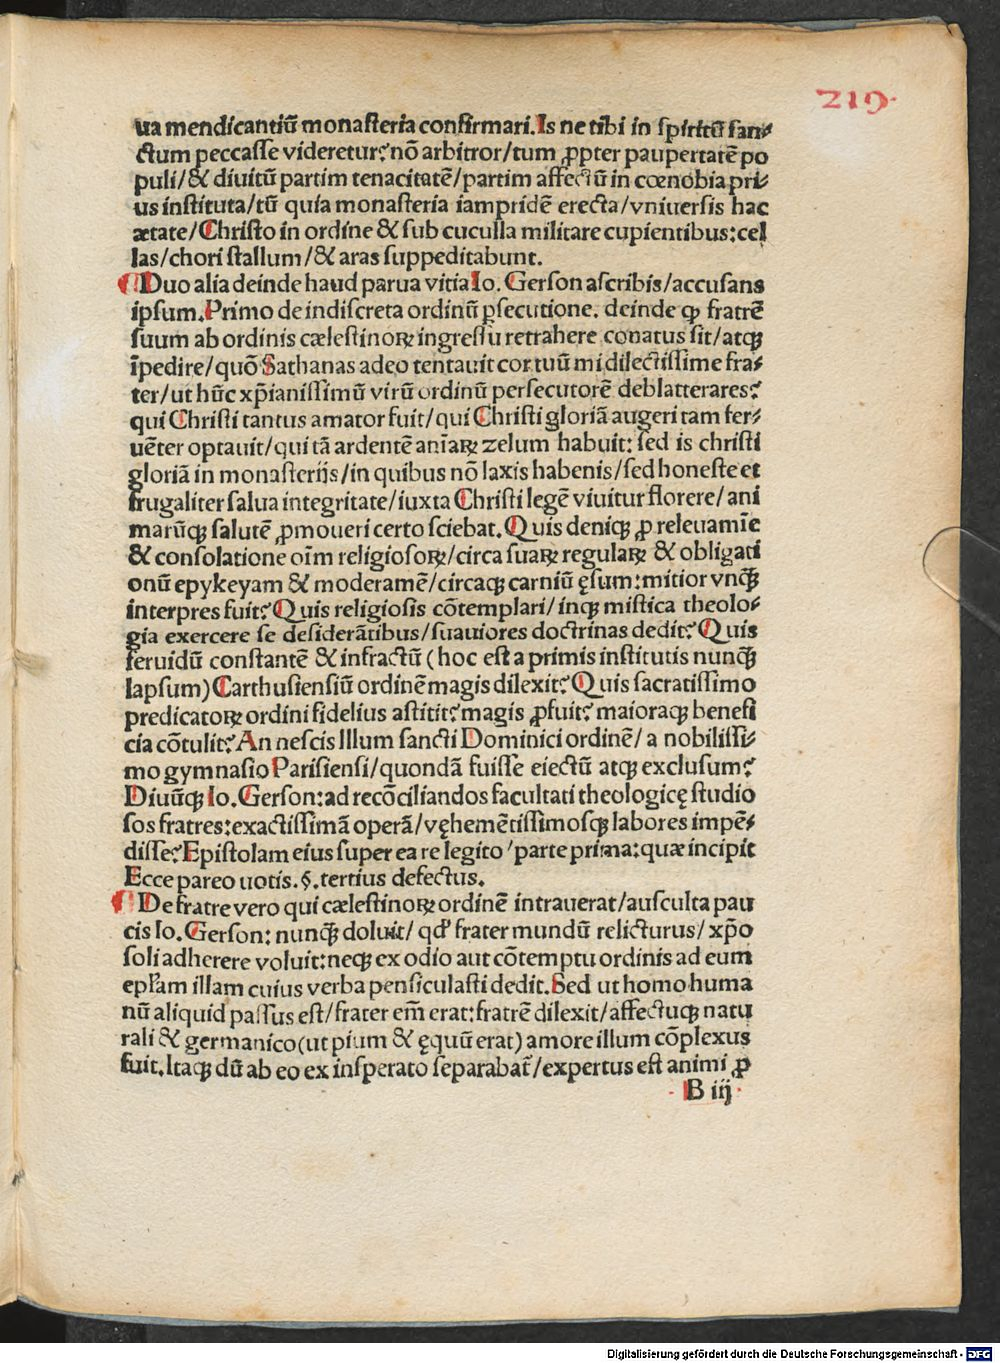 219.
ua mendicantiũ monasteria confirmari. Is ne tibi in spiritũ san⸗
ctum peccasse videretur? nõ arbitror/tum ꝓpter paupertatẽ po
puli/& diuitũ partim tenacitatẽ/partim affectũ in cœnobia pri⸗
us instituta/tũ quia monasteria iampridẽ erecta/vniuersis hac
ætate/Christo in ordine & sub cuculla militare cupientibus: cel
las/chori stallum/& aras suppeditabunt.
¶Duo alia deinde haud parua vitia Io. Gerson ascribis/accusans
ipsum. Primo de indiscreta ordinũ ꝑsecutione. deinde ꝙ fratrẽ
suum ab ordinis cælestinoꝝ ingressu retrahere conatus sit/atqꝫ
ĩpedire/quõ Sathanas adeo tentauit cor tuũ mi dilectissime fra⸗
ter/ut hũc xp̃ianissimũ virũ ordinũ persecutorẽ deblatterares?
qui Christi tantus amator fuit/qui Christi gloriã augeri tam fer⸗
uẽter optauit/qui tã ardentẽ aĩaꝝ zelum habuit: sed is christi
gloriã in monasterijs/in quibus nõ laxis habenis/sed honeste et
frugaliter salua integritate/iuxta Christi legẽ viuitur florere/ani
marũqꝫ salutẽ ꝓmoueri certo sciebat. Quis deniqꝫ ꝓ releuamĩe
& consolatione oĩm religiosoꝝ/circa suaꝝ regulaꝝ & obligati
onũ epykeyam & moderamẽ/circaqꝫ carniũ ęsum: mitior vnqꝫ̃
interpres fuit? Quis religiosis cõtemplari/inqꝫ mistica theolo⸗
gia exercere se desiderãtibus/suauiores doctrinas dedit? Quis
feruidũ constantẽ & infractũ (hoc est a primis institutis nunqꝫ̃
lapsum) Carthusiensiũ ordinẽ magis dilexit? Quis sacratissimo
predicatoꝝ ordini fidelius astitit? magis ꝓfuit? maioraqꝫ benefi
cia cõtulit? An nescis Illum sancti Dominici ordinẽ/a nobilissi⸗
mo gymnasio Parisiensi/quondã fuisse eiectũ atqꝫ exclusum?
Diuũqꝫ Io. Gerson: ad recõciliandos facultati theologicę studio
sos fratres: exactissimã operã/vęhemẽtissimosqꝫ labores impẽ⸗
disse? Epistolam eius super ea re legito/parte prima: quæ incipit
Ecce pareo uotis. §. tertius defectus.
¶De fratre vero qui cælestinoꝝ ordinẽ intrauerat/ausculta pau
cis Io. Gerson: nunqꝫ̃ doluit/ qđ frater mundũ relicturus/ xp̃o
soli adherere voluit: neqꝫ ex odio aut cõtemptu ordinis ad eum
ep̃lam illam cuius verba pensiculasti dedit. Sed ut homo huma
nũ aliquid passus est/frater em̃ erat: fratrẽ dilexit/affectuqꝫ natu
rali & germanico (ut pium & ęquũ erat) amore illum cõplexus
fuit. Itaqꝫ dũ ab eo ex insperato separabat̃/expertus est animi ꝓ
B iij
Digitalisierung gefördert durch die Deutsche Forschungsgemeinschaft - DFG